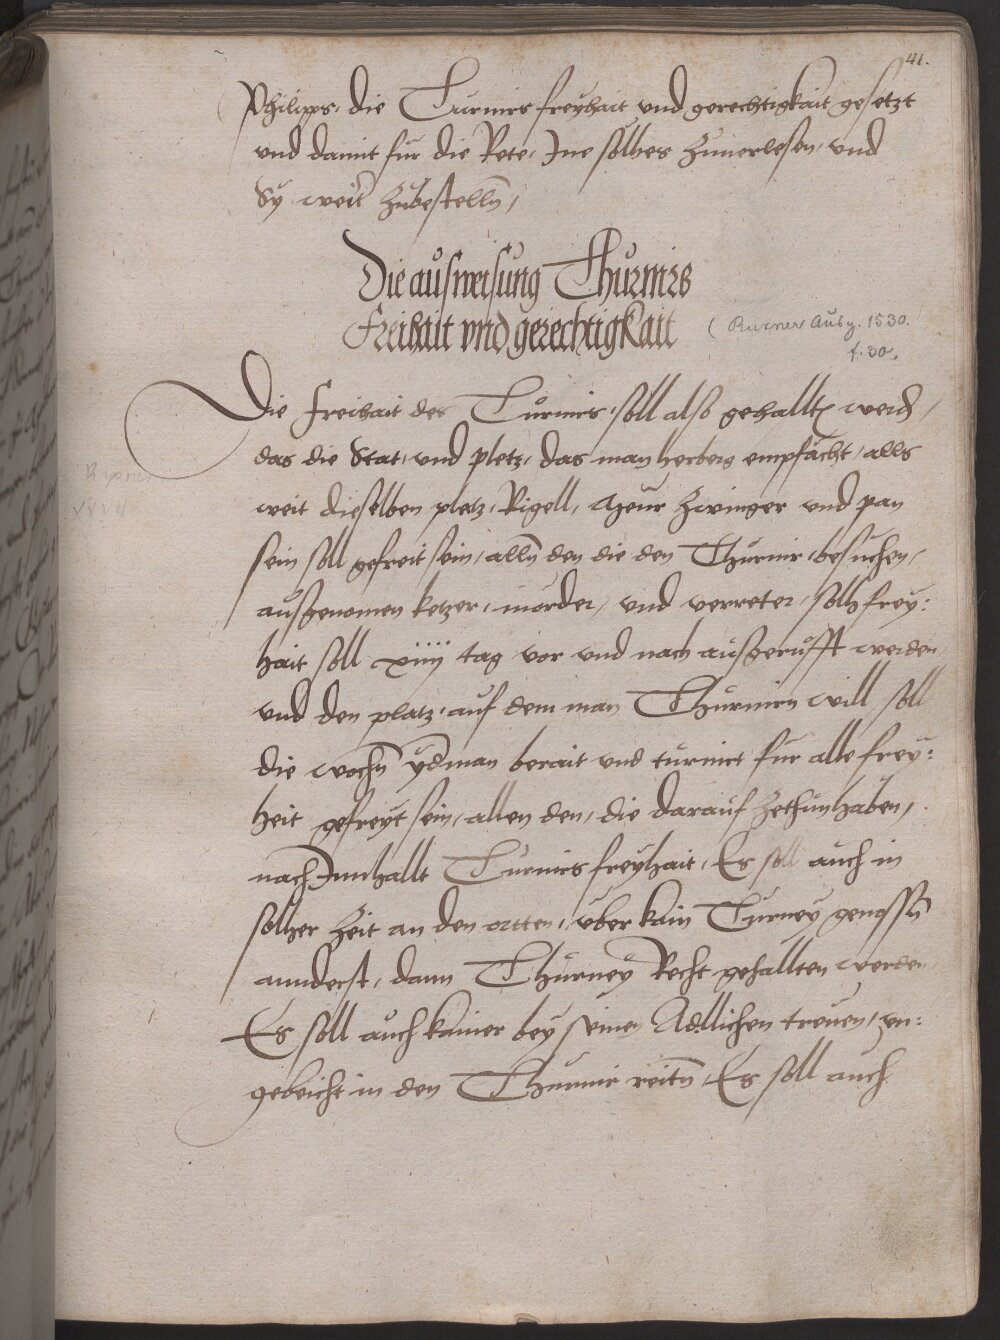 41.
Philipps, die Turnirs freyhait vnd gerechtigkait gesetzt
vnd damit für die Rete, Jne sölhes zuuerlesen, vnd
Sy weitr zubestelln,
Die aufweisung Thurnirs
Freihait vnd gerechtigkait
( Rurner Ausg. 1530.
f. 30.
Die Freihait des Turnirs, soll also gehallten werdn,
das die Stat, vnd pletz, das man herberg empfächt, alls
weit dieselben pletz, Rigell, Zwinger vnd pan
sein soll gefreit sein, alln den die den Thurnir besuchen,
außgenomen ketzer, mörder, vnd verreter, solh frey:
hait soll xiiij tag vor vnd nach außgerüfft werden
vnd den platz, auf dem man Thurnirn will soll
die wochn yderman berait vnd turnirt für alle frey:
heit gefreyt sein, allen den, die darauf zethun haben,
nach Innhallt Turnirs freyhait, Es soll auch in
solher Zeit an den ortten, vber kain Turney genossn
annderst, dann Thurney Recht gehallten werden
Es soll auch kainer bey seinen Adllichen treuen, vn:
gebeicht in den Thurnir reitn Es soll auch